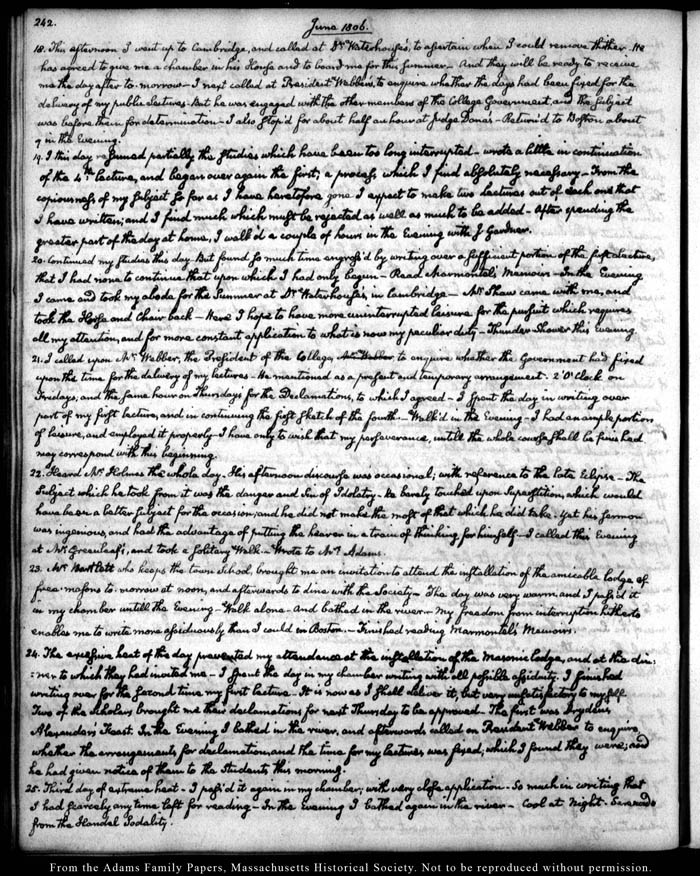 242.
June 1806.
18. This afternoon I went up to Cambridge, and called at Dr. Waterhouse's, to ascertain when I could remove thither. He
has agreed to give me a chamber in his House and to board me for this summer. And they will be ready to receive
me the day after to-morrow — I next called at President Webber's, to enquire whether the days had been fixed for the
delivery of my public Lectures. But he was engaged with the other members of the College Government and the subject
was before them for determination — I also stop'd for about half an hour at Judge Dana's — Return'd to Boston about
9 in the Evening.
19. I this day resumed partially the studies which have been too long interrupted — wrote a little in continuation
of the 4th lecture, and began over again the first; a process which I find absolutely necessary — From the
copiousness of my subject so far as I have heretofore gone I expect to make two Lectures out of each one that
I have written; and I find much which must be rejected as well as much to be added — After spending the
greater part of the day at home, I walk'd a couple of hours in the Evening with J. Gardner.
20. Continued my studies this day. But found so much time engross'd by writing over a sufficient portion of the first lecture,
that I had none to continue that upon which I had only begun — Read Marmontel's Memoirs — In the Evening
I came and took my abode for the Summer at Dr. Waterhouse's, in Cambridge — Mr. Shaw came with me, and
took the Horse and Chair back — Here I hope to have more uninterrupted leisure for the pursuit which requires
all my attention, and for more constant application to what is now my peculiar duty — Thunder Shower this evening.
21. I called upon Mr. Webber, the President of the College, to enquire whether the Government had fixed
upon the time for the delivery of my lectures. He mentioned as a present and temporary arrangement. 2 O'Clock on
Fridays, and the same hour on Thursdays for the Declamations, to which I agreed — I spent the day in writing over
part of my first lecture, and in continuing the first sketch of the fourth — Walk'd in the Evening — I had an ample portion
of leisure, and employed it properly — I have only to wish that my perseverance, untill the whole course shall be finished
may correspond with this beginning.
22. Heard Mr. Holmes the whole day. His afternoon discourse was occasional; with reference to the late Eclipse — The
subject which he took from it was the danger and sin of Idolatry. He barely touched upon Superstition, which would
have been a better subject for the occasion; and he did not make the most of that which he did take. Yet his sermon
was ingenious, and had the advantage of putting the hearer in a train of thinking, for himself — I called this Evening
at Mr. Greenleaf's, and took a solitary Walk — Wrote to Mrs. Adams.
23. Mr. Bartlett who keeps the town School, brought me an invitation to attend the installation of the amicable lodge of
free-masons to-morrow at noon, and afterwards to dine with the Society — The day was very warm and I pass'd it
in my chamber untill the Evening — Walk alone — And bathed in the river — My freedom from interruption hitherto
enables me to write more assiduously than I could in Boston — Finished reading Marmontel's Memoirs.
24. The excessive heat of the day prevented my attendance at the installation of the Masonic lodge, and at the din:
:ner to which they had invited me — I spent the day in my chamber writing with all possible assiduity. I finished
writing over for the second time my first lecture. It is now as I shall deliver it, but very unsatisfactory to myself
Two of the scholars brought me their declamations for next Thursday to be approved — The first was Dryden's
Alexander's Feast. In the Evening I bathed in the river, and afterwards called on President Webber to enquire
whether the arrangements for declamation, and the time for my lectures was fixed; which I found they were; and
he had given notice of them to the Students this morning.
25. Third day of extreme heat — I pass'd it again in my chamber; with very close application — So much in writing that
I had scarcely any time left for reading — In the Evening I bathed again in the river — Cool at Night. Serenade
from the Handel Sodality.
From the Adams Family Papers, Massachusetts Historical Society. Not to be reproduced without permission.